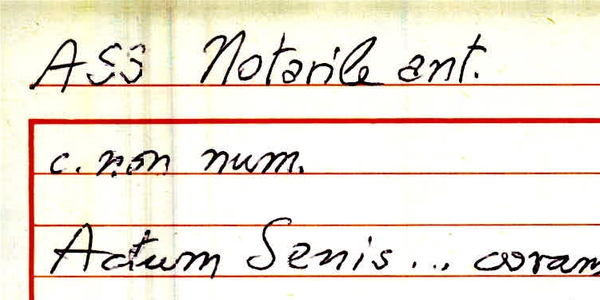 ASS Notarile ant.
c. non num.
Actum Senis... coram